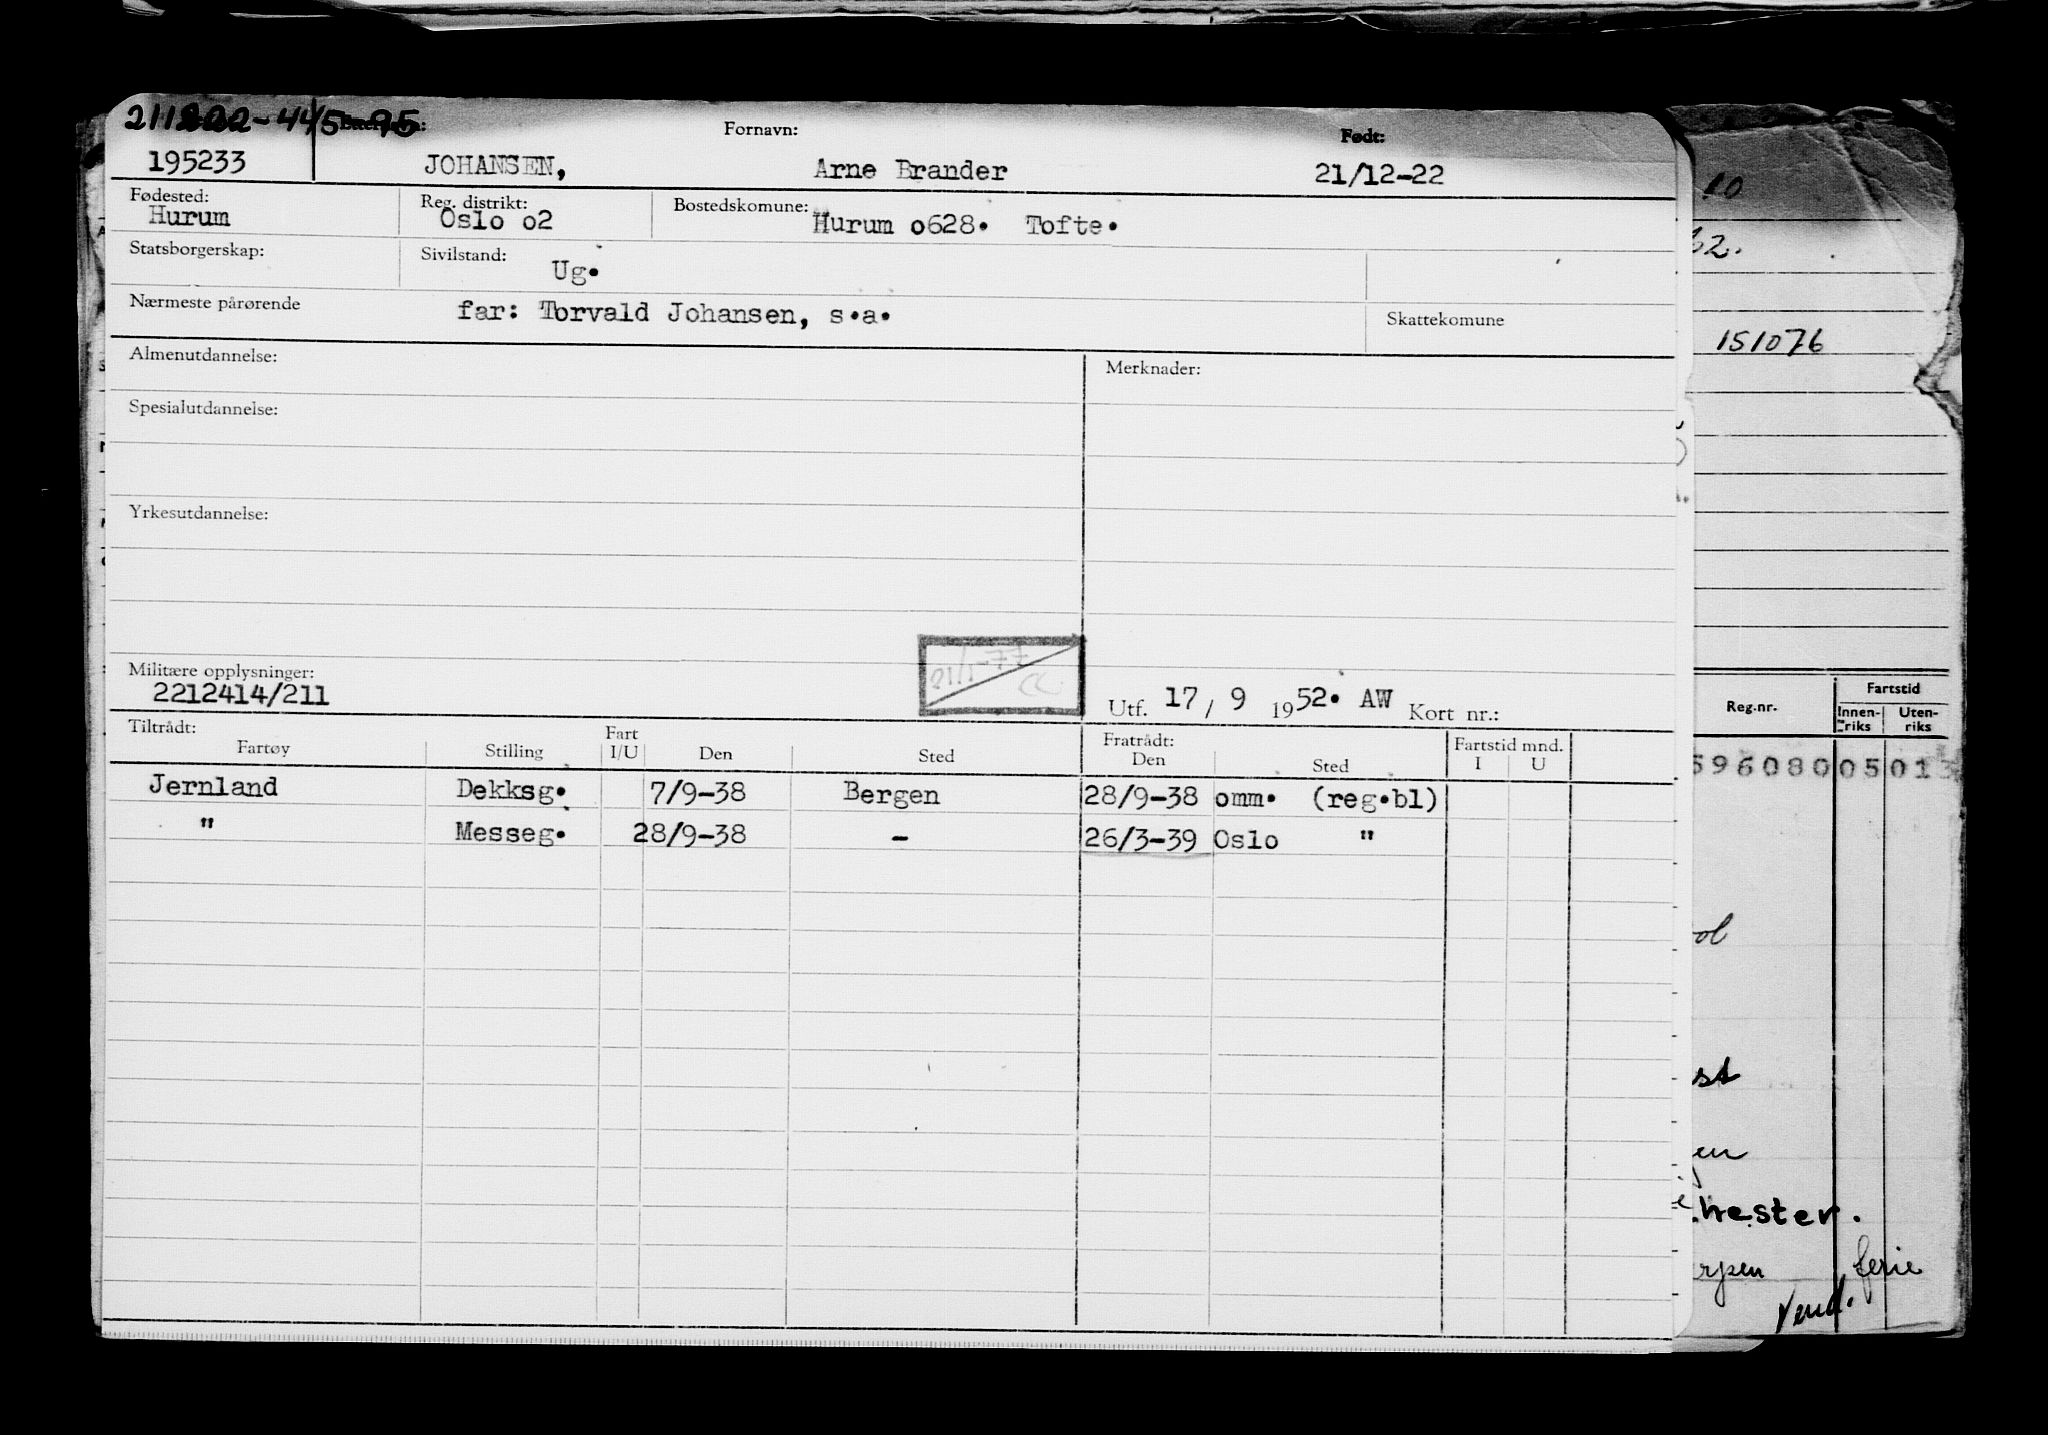 211222-445-95
Fornavn: Født:
195233 JOHANSEN, Arne Brander 21/12-22
Fødested: Reg. distrikt: Bostedskomune:
Hurum Oslo o2 Hurum o628. Tofte.
Statsborgerskap: Sivilstand: Ug.
Nærmeste pårørende far: Torvald Johansen, s.a. Skattekomune
Almenutdannelse: Merknader:
Spesialutdannelse:
Yrkesutdannelse:
21/1-77
CC.
Militære opplysninger:
2212414/211 Utf. 17/9 1952. AW Kort nr.:
Tiltrådt: Fratrådt:
Fartøy Stilling Fart I/U Den Sted Den Sted Fartstid mnd. I U
Jernland Dekksg. 7/9-38 Bergen 28/9-38 omm. (reg.bl)
" Messeg. 28/9-38 - 26/3-39 Oslo "
10
32.
151076
Reg.nr. Fartstid
Innen-riks Uten-riks
5960800 05 013
ol
st
en
hester.
rpen ferie
Vend.